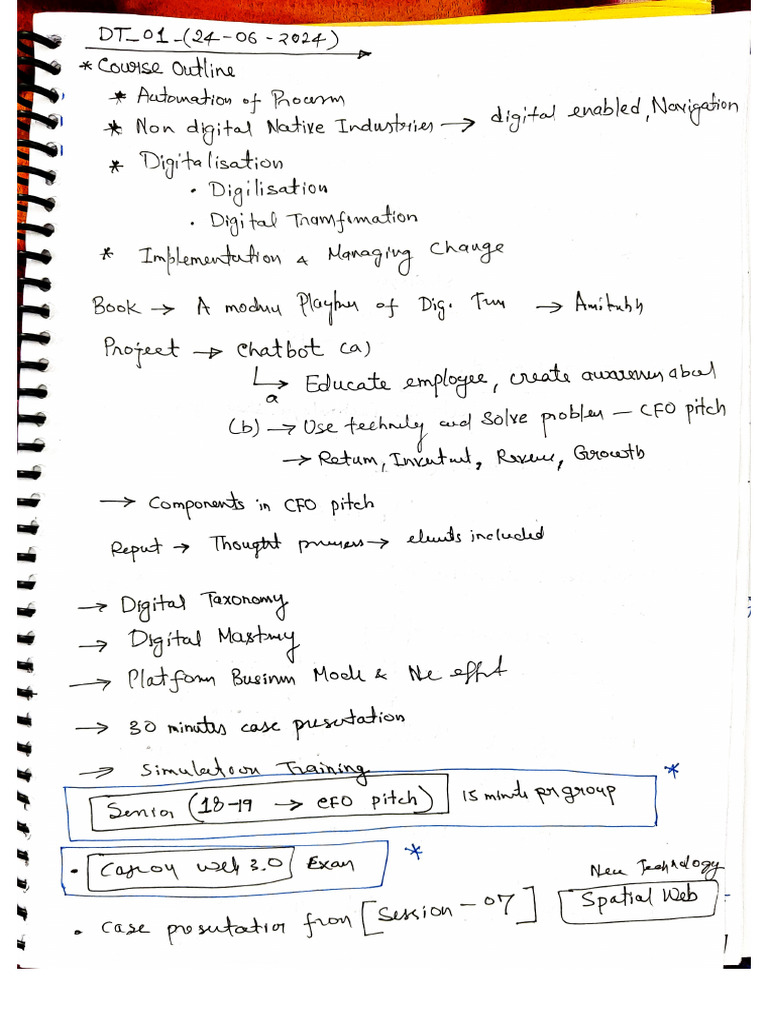 DT_01-(24-06-2024)
* Course Outline
* Automation of Process
* Non digital Native Industries → digital enabled, Navigation
* Digitalisation
• Digilisation
• Digital Tramfrmation
* Implementation & Managing Change
Book → A of Dig. → Amitabh
Project → Chatbot (a)
a → Educate employee, create awareness about
(b) → Use technlgy and solve problem – CFO pitch
→ Return, Investment, Revenue, Growth
→ Components in CFO pitch
→ Thought process → included
→ Digital Taxonomy
→ Digital Mastery
→ Platform Business Model & Ne effect
→ 30 minutes case presentation
→ Simulation Training
(18-19 → CFO pitch) 15 minute per group *
• Case on Web 3.0 Exam *
New Technology
• Case presentation from [Session - 07] Spatial Web